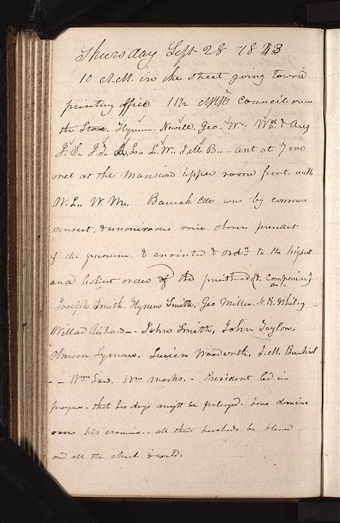 Thursday Sept 28 1843
10 A.M. in the street going toward
printing office 11½ Council over
the Store, Hyrum. Newel. Geo. W. & Aug
J. S. L. W. J. M. B. — ant at 7 eve
met at the Mansion upper room front. with
W. L. W. M. Baurak Ale was by common
consent, & unanimous voice chosen president
of the quorum. & anointed & Ord. to the highest
and holiest order of the priesthood (& companion)
Joseph Smith. Hyrum Smith. Geo Miller. N. K. Whitney —
Willard Richards — John Smith, John Taylor,
Amasa Lyman, Lucien Woodworth, J. M. Bernhisel
— Wm Law. Wm Marks. — President led in
prayer. that his days might be prolonged. have dominion
over his enemies. all their households be blessed
and all the church & world.